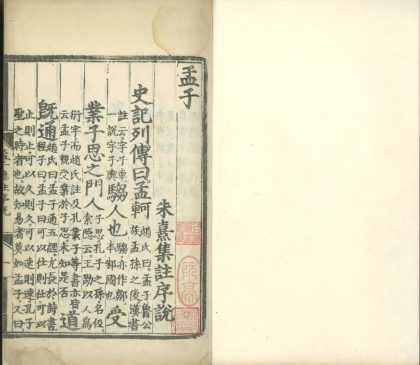 孟子
朱熹集註序說
史記列傳曰孟軻趙氏曰孟子魯公族孟孫之後漢書
註云字子車一說字子輿騶人也騶亦作鄒本邾國也受
業子思之門人子思孔子之孫名伋索隱云王劭以人為
衍字而趙氏註及孔叢子等書亦皆云孟子親受業於子思未知是否道
既通趙氏曰孟子通五經尤長於詩書程子曰孟子曰可以仕則仕可以
止則止可以久則久可以速則速孔子聖之時者也故知易者莫如孟子又曰